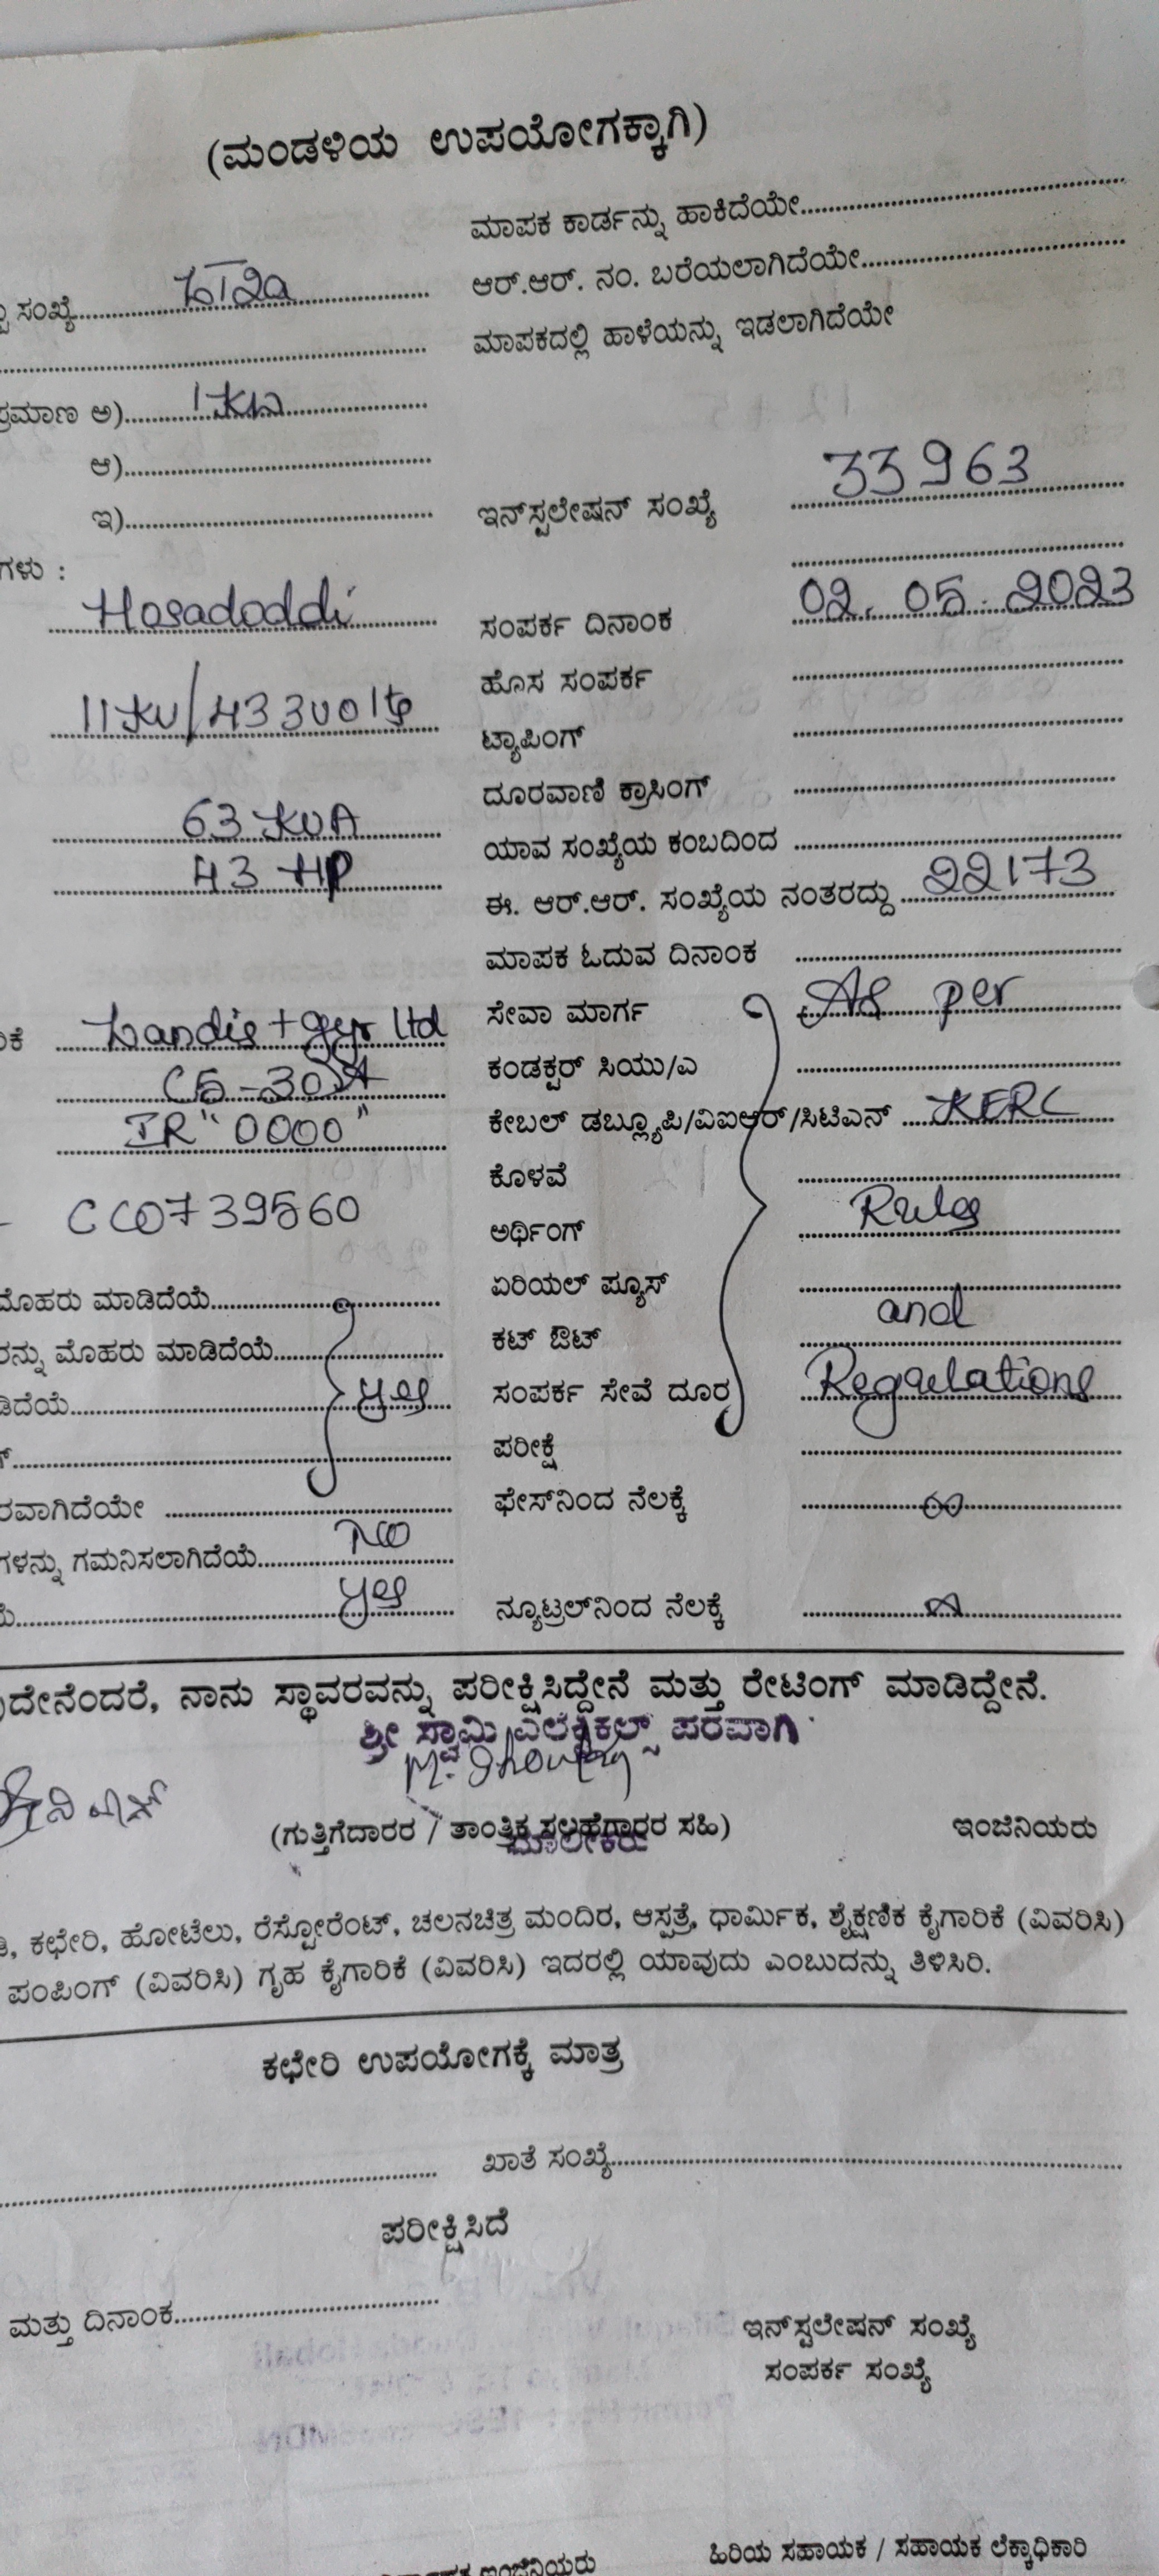 (ಮಂಡಳಿಯ ಉಪಯೋಗಕ್ಕಾಗಿ)
ಮಾಪಕ ಕಾರ್ಡನ್ನು ಹಾಕಿದೆಯೇ
ಸಂಖ್ಯೆ LT2a ಆರ್.ಆರ್. ನಂ. ಬರೆಯಲಾಗಿದೆಯೇ
ಮಾಪಕದಲ್ಲಿ ಹಾಳೆಯನ್ನು ಇಡಲಾಗಿದೆಯೇ
ಪ್ರಮಾಣ ಅ) 1KW
ಆ)
ಇ) ಇನ್‌ಸ್ಟಲೇಷನ್ ಸಂಖ್ಯೆ 33963
ಗಳು :
Hosadoddi ಸಂಪರ್ಕ ದಿನಾಂಕ 02.05.2023
ಹೊಸ ಸಂಪರ್ಕ
11KV/433volts ಟ್ಯಾಪಿಂಗ್
ದೂರವಾಣಿ ಕ್ರಾಸಿಂಗ್
63 KVA ಯಾವ ಸಂಖ್ಯೆಯ ಕಂಬದಿಂದ
43 HP ಈ. ಆರ್.ಆರ್. ಸಂಖ್ಯೆಯ ನಂತರದ್ದು 22173
ಮಾಪಕ ಓದುವ ದಿನಾಂಕ
Landis+gyr ltd ಸೇವಾ ಮಾರ್ಗ As per
C5-30A ಕಂಡಕ್ಟರ್ ಸಿಯು/ಎ
IR "0000" ಕೇಬಲ್ ಡಬ್ಲ್ಯೂಪಿ/ವಿಐಆರ್/ಸಿಟಿಎನ್ KERC
ಕೊಳವೆ
CC0739560 ಅರ್ಥಿಂಗ್ Rules
ಮೊಹರು ಮಾಡಿದೆಯೆ ಏರಿಯಲ್ ಪ್ಯೂಸ್
ರನ್ನು ಮೊಹರು ಮಾಡಿದೆಯೆ ಕಟ್ ಔಟ್ and
ಡಿದೆಯೆ yes ಸಂಪರ್ಕ ಸೇವೆ ದೂರ Regulations
ಪರೀಕ್ಷೆ
ರವಾಗಿದೆಯೇ ಫೇಸ್‌ನಿಂದ ನೆಲಕ್ಕೆ ∞
ಗಳನ್ನು ಗಮನಿಸಲಾಗಿದೆಯೆ No
yes ನ್ಯೂಟ್ರಲ್‌ನಿಂದ ನೆಲಕ್ಕೆ
ದೇನೆಂದರೆ, ನಾನು ಸ್ಥಾವರವನ್ನು ಪರೀಕ್ಷಿಸಿದ್ದೇನೆ ಮತ್ತು ರೇಟಿಂಗ್ ಮಾಡಿದ್ದೇನೆ.
ಶ್ರೀ ಸ್ವಾಮಿ ಎಲೆಕ್ಟ್ರಿಕಲ್ಸ್ ಪರವಾಗಿ
(ಗುತ್ತಿಗೆದಾರರ / ತಾಂತ್ರಿಕ ಸಲಹೆಗಾರರ ಸಹಿ) ಇಂಜಿನಿಯರು
ಮಾಲೀಕರು
ಕಛೇರಿ, ಹೋಟೆಲು, ರೆಸ್ಟೋರೆಂಟ್, ಚಲನಚಿತ್ರ ಮಂದಿರ, ಆಸ್ಪತ್ರೆ, ಧಾರ್ಮಿಕ, ಶೈಕ್ಷಣಿಕ ಕೈಗಾರಿಕೆ (ವಿವರಿಸಿ)
ಪಂಪಿಂಗ್ (ವಿವರಿಸಿ) ಗೃಹ ಕೈಗಾರಿಕೆ (ವಿವರಿಸಿ) ಇದರಲ್ಲಿ ಯಾವುದು ಎಂಬುದನ್ನು ತಿಳಿಸಿರಿ.
ಕಛೇರಿ ಉಪಯೋಗಕ್ಕೆ ಮಾತ್ರ
ಖಾತೆ ಸಂಖ್ಯೆ
ಪರೀಕ್ಷಿಸಿದೆ
ಮತ್ತು ದಿನಾಂಕ
ಇನ್‌ಸ್ಟಲೇಷನ್ ಸಂಖ್ಯೆ
ಸಂಪರ್ಕ ಸಂಖ್ಯೆ
ಇಂಜಿನಿಯರು ಹಿರಿಯ ಸಹಾಯಕ / ಸಹಾಯಕ ಲೆಕ್ಕಾಧಿಕಾರಿ